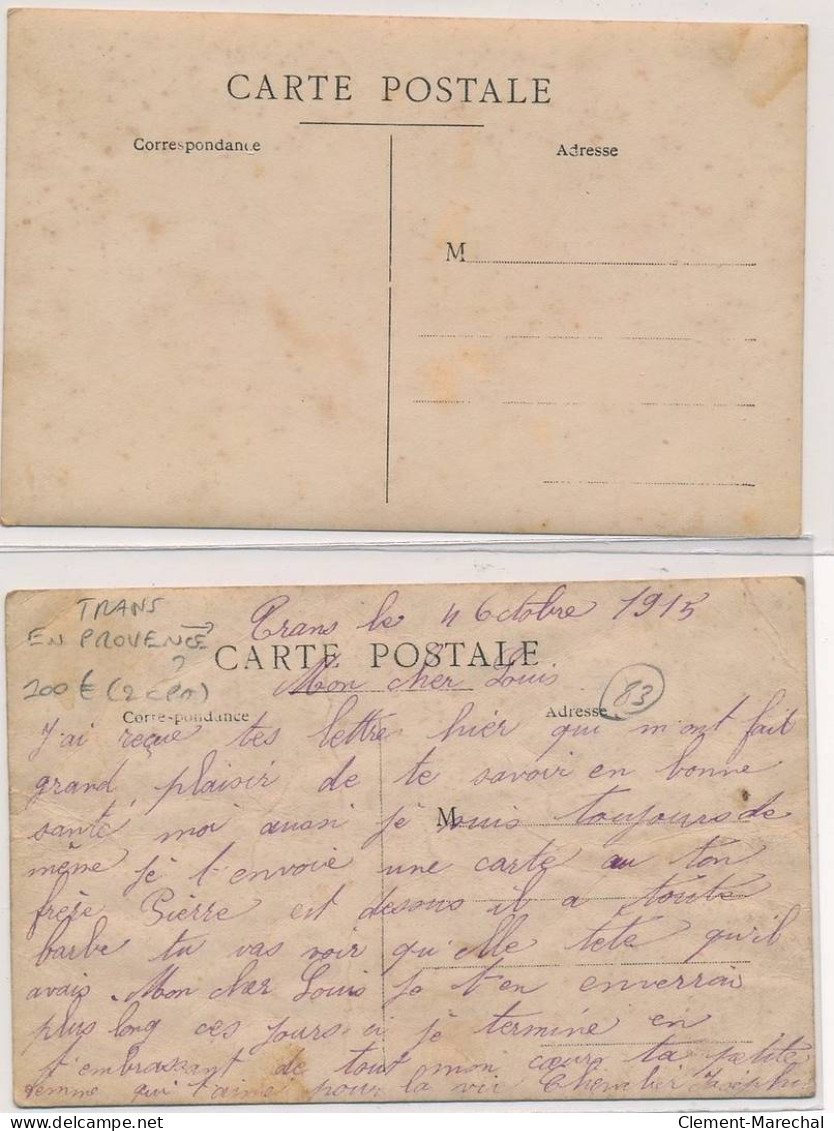 CARTE POSTALE
Correspondance
Adresse
M
TRANS
EN PROVENCE →
?
200 € (2 CPA)
Trans le 4 Octobre 1915
CARTE POSTALE
Mon cher Louis
83
Correspondance
Adresse
M
J'ai reçue tes lettre hier qui m'ont fait
grand plaisir de te savoir en bonne
santé moi aussi jé suis toujours de
même jé t'envoie une carte au ton
frère Pièrre est desous il a toute
barbe tu vas voir qu'elle tete qu'il
avais. Mon cher Louis je t'en enverrai
plus long ces jours ci je termine en
t'embrassant de tout mon cœur ta petite
femme qui t'aime pour la vie Chevalier
Delcampe.net
Clement-Marechal